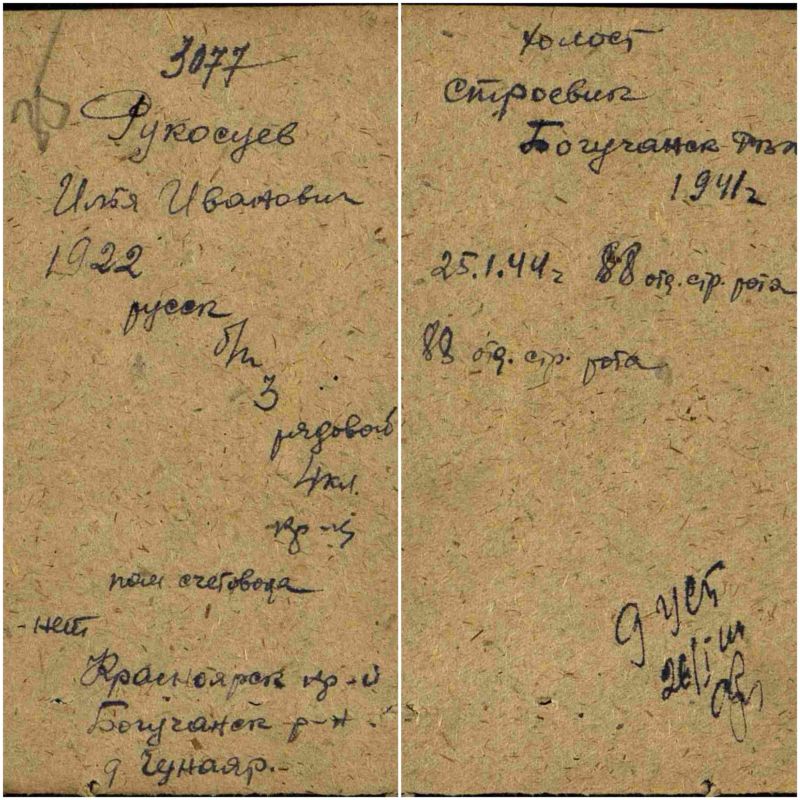 3077
Рукосуев
Илья Иванович
1922
русск
б/п
3
рядовой
4 кл.
кр-ц
пом счетовода
- нет
Красноярск кр-й
Богучанск р-н
д Чунаяр.
холост
строевик
Богучанск РВК
1941 г
25.1.44 г 88 отд. стр. рота
88 отд. стр. рота